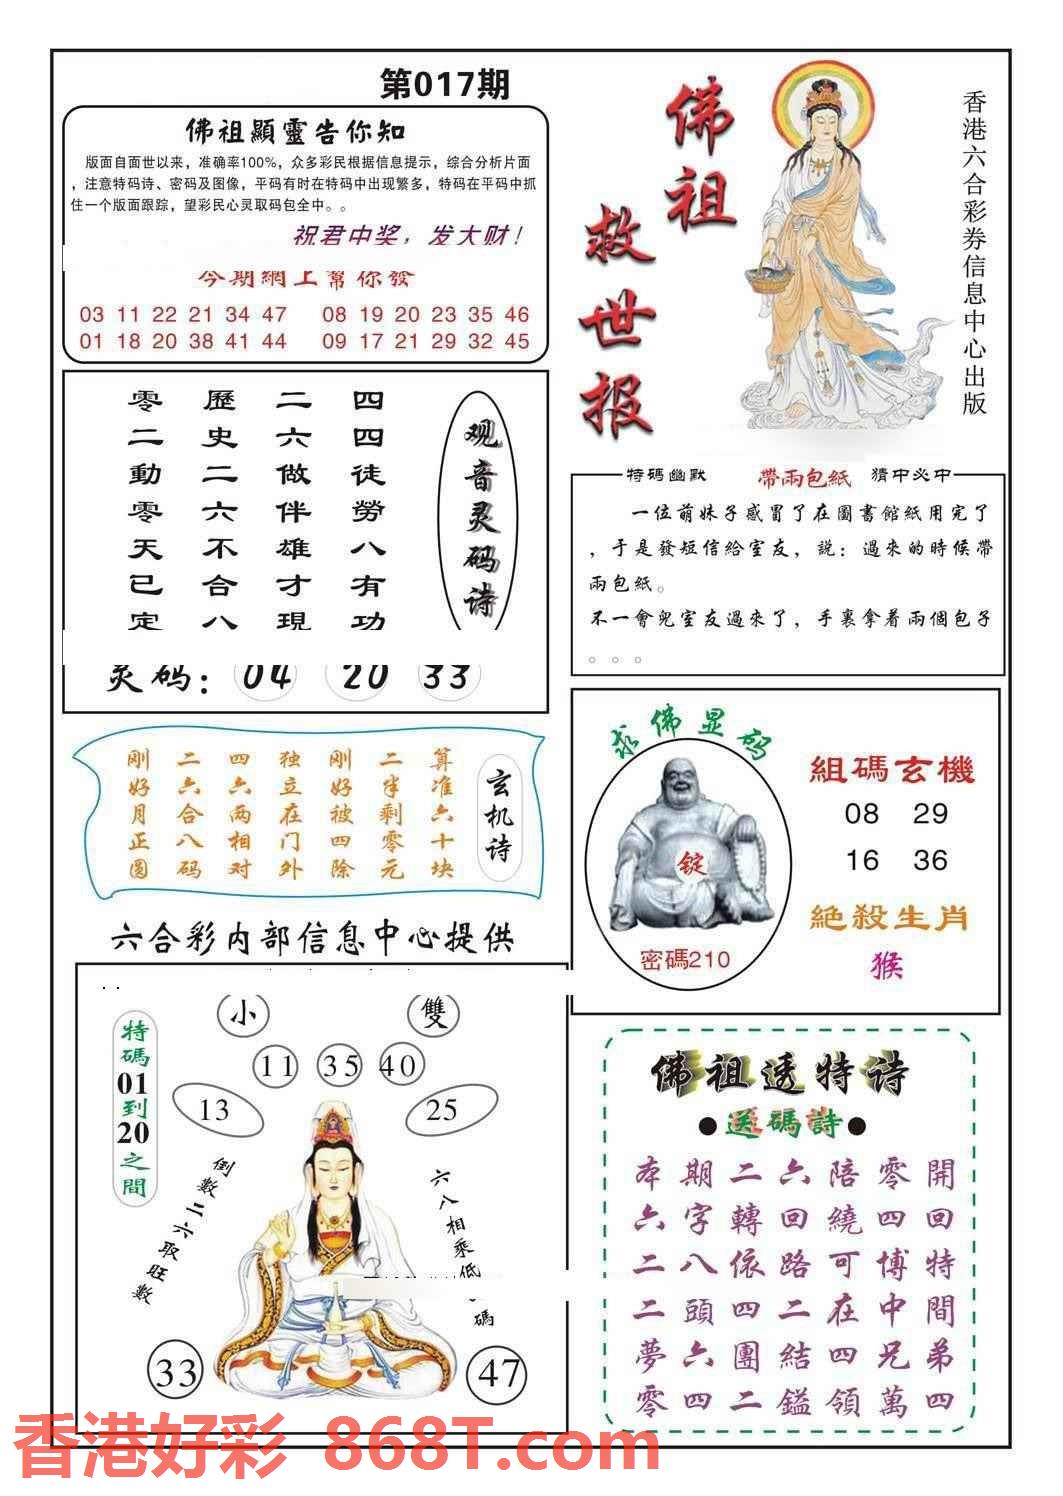 第017期
佛祖顯靈告你知
版面自面世以来，准确率100%，众多彩民根据信息提示，综合分析片面
，注意特码诗、密码及图像，平码有时在特码中出现繁多，特码在平码中抓
住一个版面跟踪，望彩民心灵取码包全中。。
祝君中奖，发大财！
今期網上幫你發
03 11 22 21 34 47 08 19 20 23 35 46
01 18 20 38 41 44 09 17 21 29 32 45
佛祖
救世报
香港六合彩券信息中心出版
观音灵码诗
四四徒勞八有功
二六做伴雄才現
歷史二六不合八
零二動零天已定
灵码：04 20 33
特碼幽默 帶兩包紙 猜中必中
一位萌妹子感冒了在圖書館紙用完了
，于是發短信給室友，説：過來的時候帶
兩包紙。
不一會兒室友過來了，手裏拿着兩個包子
。。。
玄机诗
算准六十块
二半剩零元
刚好被四除
独立在门外
四六两相对
二六合八码
刚好月正圆
求佛显码
錠
密碼210
組碼玄機
08 29
16 36
絕殺生肖
猴
六合彩内部信息中心提供
特碼01到20之間
小 雙
11 35 40
13 25
倒數二六取旺數
六八相乘低
碼
33 47
佛祖透特诗
●送碼詩●
本期二六陪零開
六字轉回繞四回
二八依路可博特
二頭四二在中間
夢六團結四兄弟
零四二鎰領萬四
香港好彩 868T.com